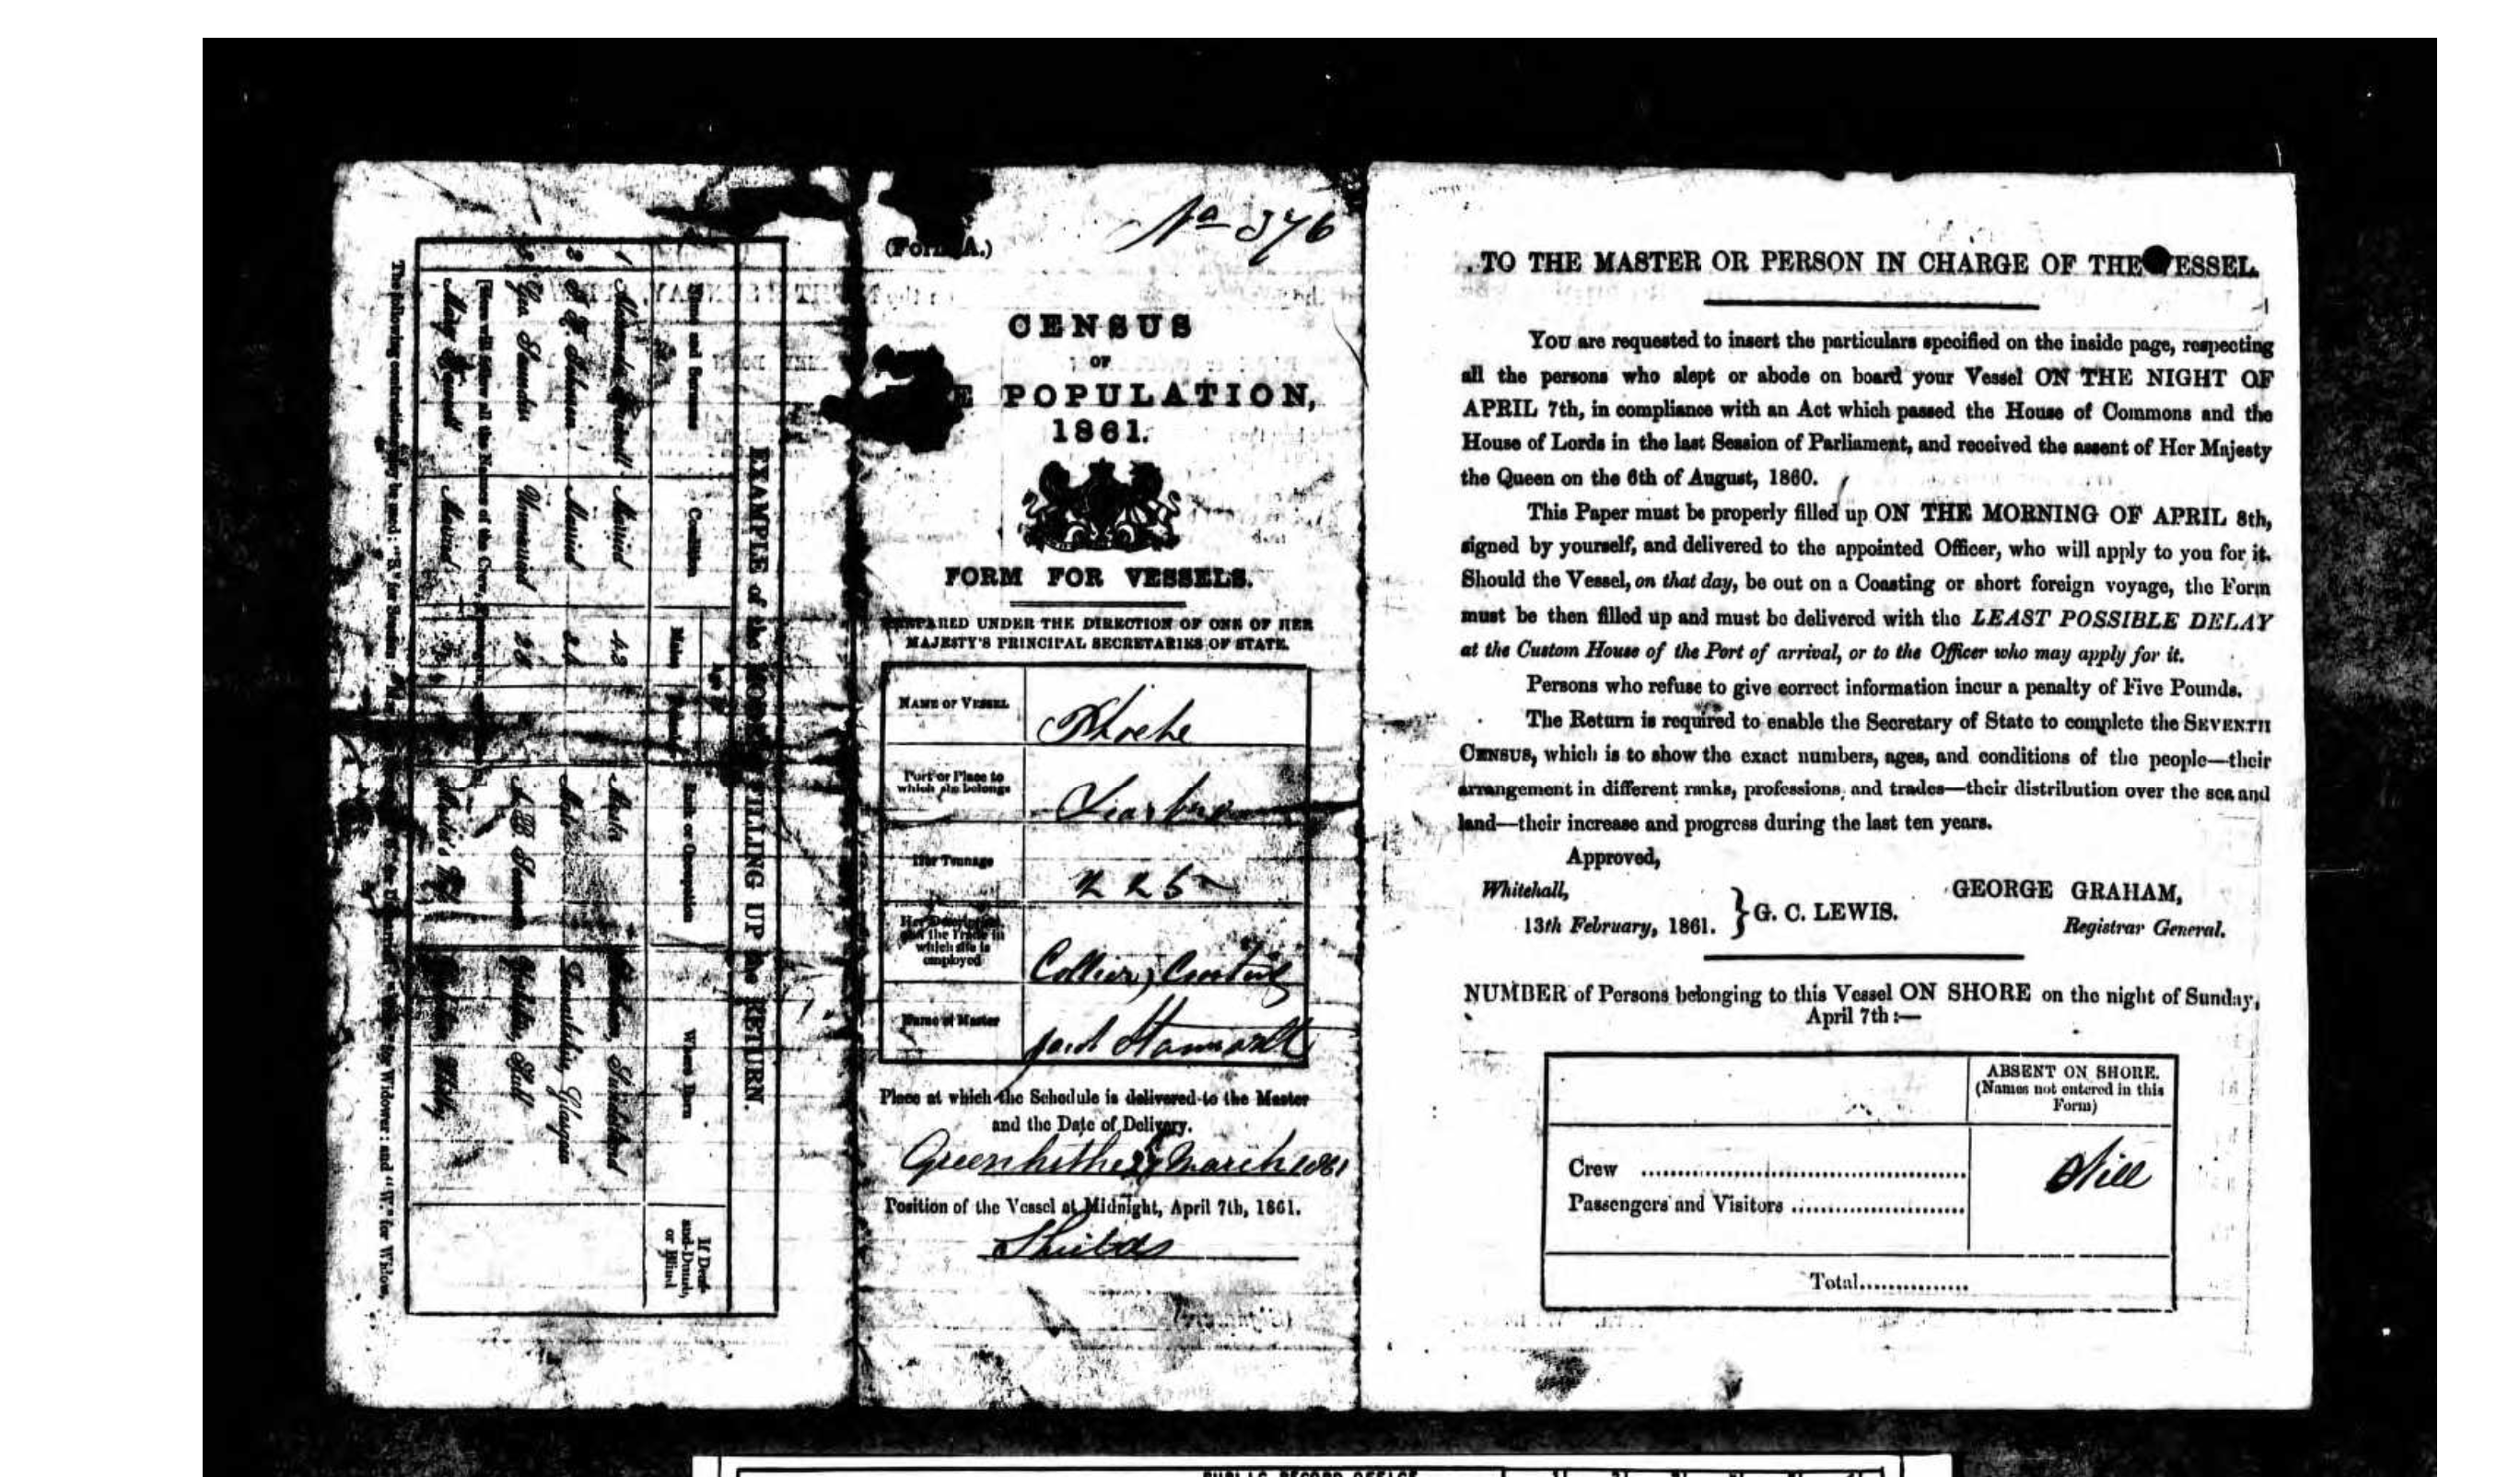 EXAMPLE of the FILLING UP the RETURN.
Name and Surname
Condition
Age of
Males
Females
Rank or Occupation
Where Born
If Deaf-
and-Dumb,
or Blind
1 Alexander Married 42 Sunderland
2 Married 21 Glasgow
3 Unmarried 28 A.B. Seaman Hull
[Here will follow all the Names of the Crew,
Mary Married Whitby
The following contractions may be used: "S." for Widower: and "W." for Widow,
No 376
(Form A.)
CENSUS
OF
POPULATION,
1861.
FORM FOR VESSELS.
PREPARED UNDER THE DIRECTION OF ONE OF HER
MAJESTY'S PRINCIPAL SECRETARIES OF STATE.
NAME OF VESSEL Phoebe
Port or Place to
which she belongs
Her Tonnage 225
Her Description
and the Trade in
which she is
employed Collier, Coasting
Name of Master
Place at which the Schedule is delivered to the Master
and the Date of Delivery.
Greenhithe 27 March 1861
Position of the Vessel at Midnight, April 7th, 1861.
Shields
TO THE MASTER OR PERSON IN CHARGE OF THE VESSEL.
YOU are requested to insert the particulars specified on the inside page, respecting
all the persons who slept or abode on board your Vessel ON THE NIGHT OF
APRIL 7th, in compliance with an Act which passed the House of Commons and the
House of Lords in the last Session of Parliament, and received the assent of Her Majesty
the Queen on the 6th of August, 1860.
This Paper must be properly filled up ON THE MORNING OF APRIL 8th,
signed by yourself, and delivered to the appointed Officer, who will apply to you for it.
Should the Vessel, on that day, be out on a Coasting or short foreign voyage, the Form
must be then filled up and must be delivered with the LEAST POSSIBLE DELAY
at the Custom House of the Port of arrival, or to the Officer who may apply for it.
Persons who refuse to give correct information incur a penalty of Five Pounds.
The Return is required to enable the Secretary of State to complete the SEVENTH
CENSUS, which is to show the exact numbers, ages, and conditions of the people—their
arrangement in different ranks, professions, and trades—their distribution over the sea and
land—their increase and progress during the last ten years.
Approved,
Whitehall,
13th February, 1861. } G. C. LEWIS.
GEORGE GRAHAM,
Registrar General.
NUMBER of Persons belonging to this Vessel ON SHORE on the night of Sunday,
April 7th:—
ABSENT ON SHORE.
(Names not entered in this
Form)
Crew ........................................ Nill
Passengers and Visitors ........................
Total................
PUBLIC RECORD OFFICE